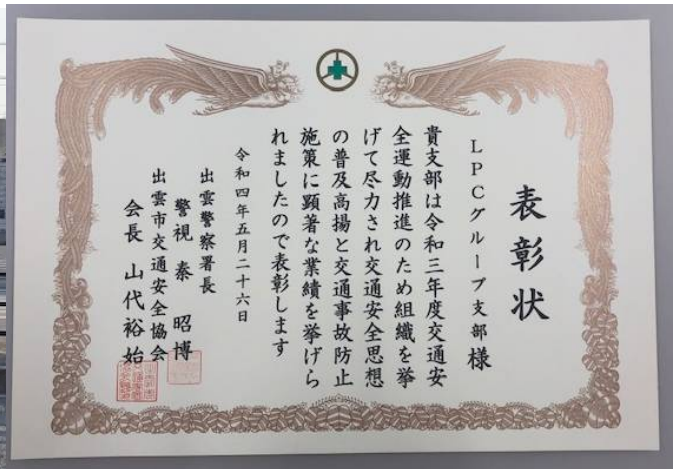 表彰状
LPCグループ支部様
貴支部は令和三年度交通安
全運動推進のため組織を挙
げて尽力され交通安全思想
の普及高揚と交通事故防止
施策に顕著な業績を挙げら
れましたので表彰します
令和四年五月二十六日
出雲警察署長
警視 秦 昭博
出雲市交通安全協会
会長 山代裕始